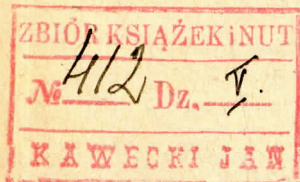 ZBIÓR KSIĄŻEK i NUT
№ 412 Dz. V.
KAWECKI JAN